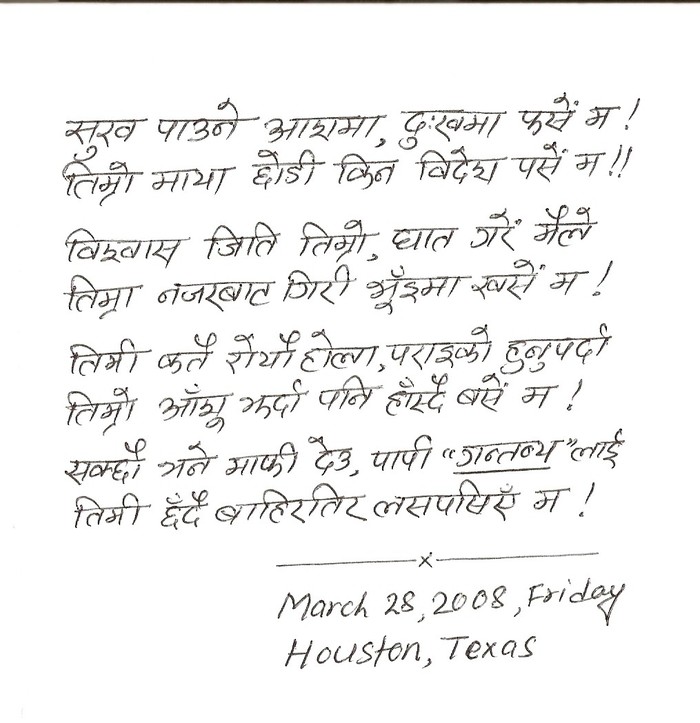 सुख पाउने आशमा, दुःखमा फसें म !
तिम्रो माया छोडी किन विदेश पसें म !!
विश्वास जिति तिम्रो, घात गरें मैले
तिम्रा नजरबाट गिरी भूँइमा खसें म !
तिमी कतै रोयौ होला, पराइको हुनुपर्दा
तिम्रो आँशु झर्दा पनि हाँस्दै बसें म !
सक्छौ भने माफी देउ, पापी “गन्तब्य” लाई
तिमी छँदै बाहिरतिर लसपसिएँ म !
x
March 28, 2008, Friday
Houston, Texas